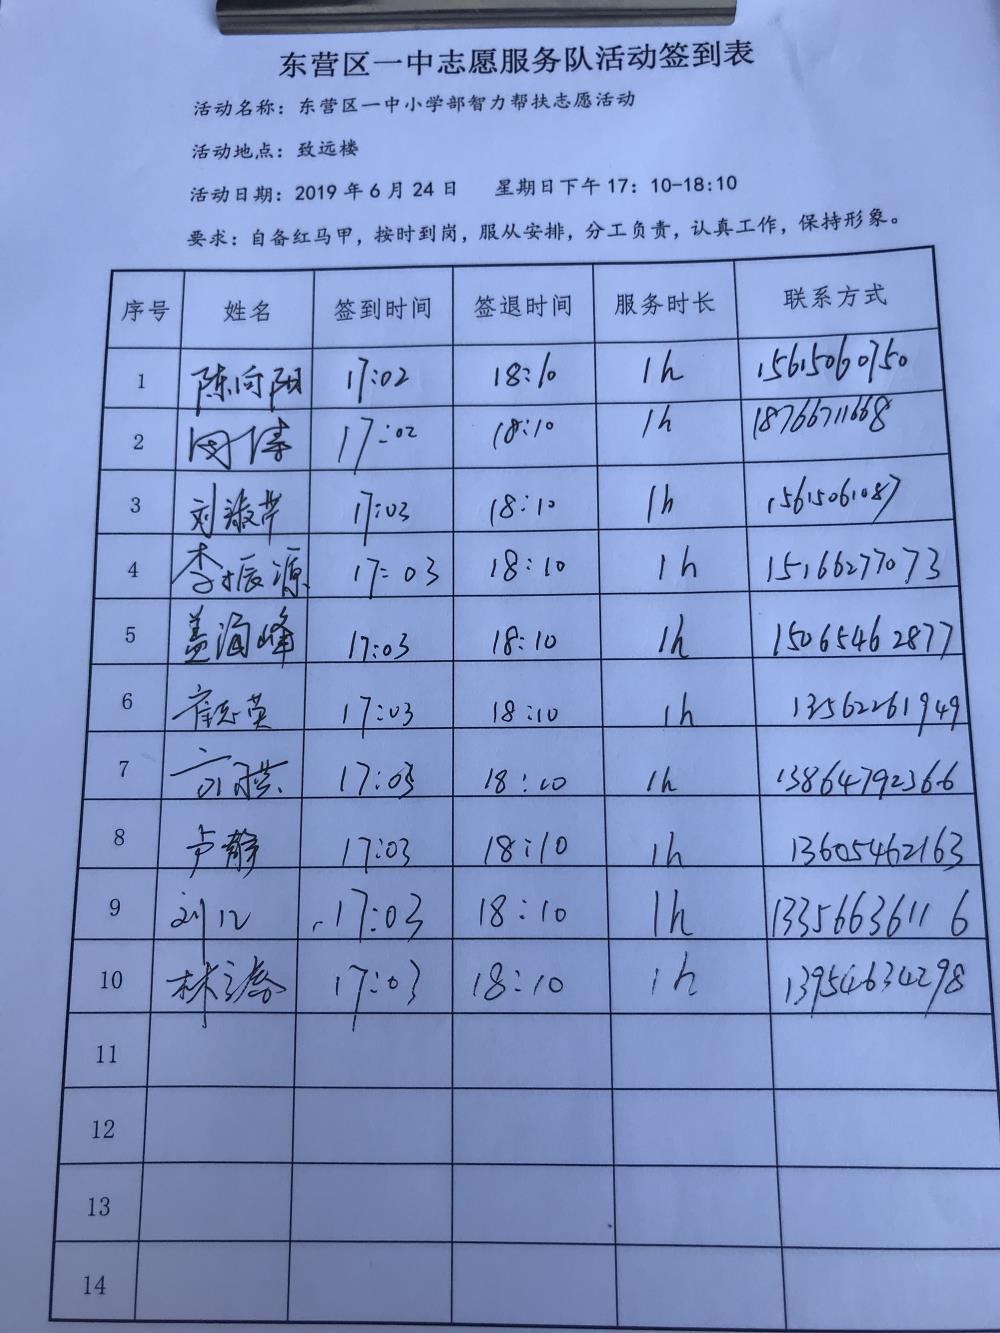 东营区一中志愿服务队活动签到表
活动名称：东营区一中小学部智力帮扶志愿活动
活动地点：致远楼
活动日期：2019 年 6 月 24 日 星期日下午 17：10-18:10
要求：自备红马甲，按时到岗，服从安排，分工负责，认真工作，保持形象。
序号 姓名 签到时间 签退时间 服务时长 联系方式
1 陈向阳 17:02 18:10 1h 15615060750
2 17:02 18:10 1h 18766711668
3 刘淑芹 17:03 18:10 1h 15615061087
4 李振源 17:03 18:10 1h 15166277073
5 盖海峰 17:03 18:10 1h 15065462877
6 崔志英 17:03 18:10 1h 13562261949
7 17:03 18:10 1h 13864792366
8 卢静 17:03 18:10 1h 13605462163
9 17:03 18:10 1h 13356636116
10 17:03 18:10 1h 13954634298
11
12
13
14